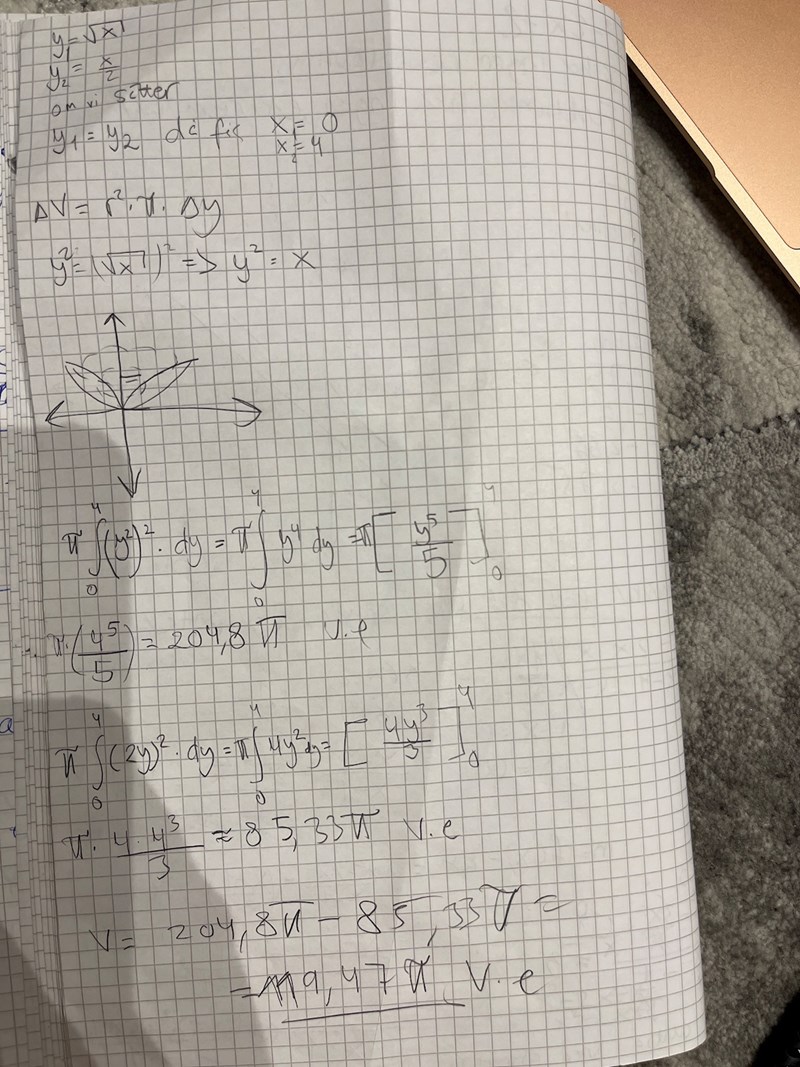 y₁=√x
y₂= x/2
om vi sätter
y₁=y₂ då fås x₁=0
x₂=4
ΔV= r²·π·Δy
y²=(√x)² => y²=x
π ∫₀⁴ (y²)²·dy = π ∫₀⁴ y⁴ dy =π[y⁵/5]₀⁴
π·(4⁵/5)=204,8π v.e
π ∫₀⁴ (2y)²·dy=π ∫₀⁴ 4y²dy= [4y³/3]₀⁴
π· 4·4³/3 ≈ 85,33π v.e
V= 204,8π - 85,33π =
=119,47π v.e